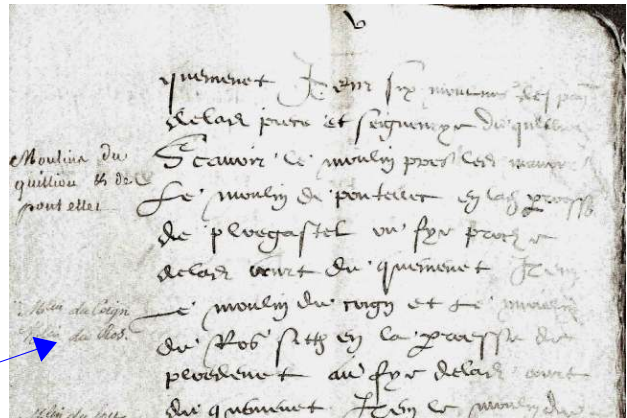 v
quemenet Item six moulins des
delad piece et seigneurye du quilliou
Scavoir le moulin pres led manoir
Le moulin de pontellec en lad parosse
de ploegastel ou fye proche
delad court du quemenet Item
Le moulin du coign et Le moulin
de Ros sith en la parosse de
ploedenet au fye delad court
du quemenet Item le moulin de
Moulins du
quilliou & de
pontellec
Melin du Coign
Melin du Ros.